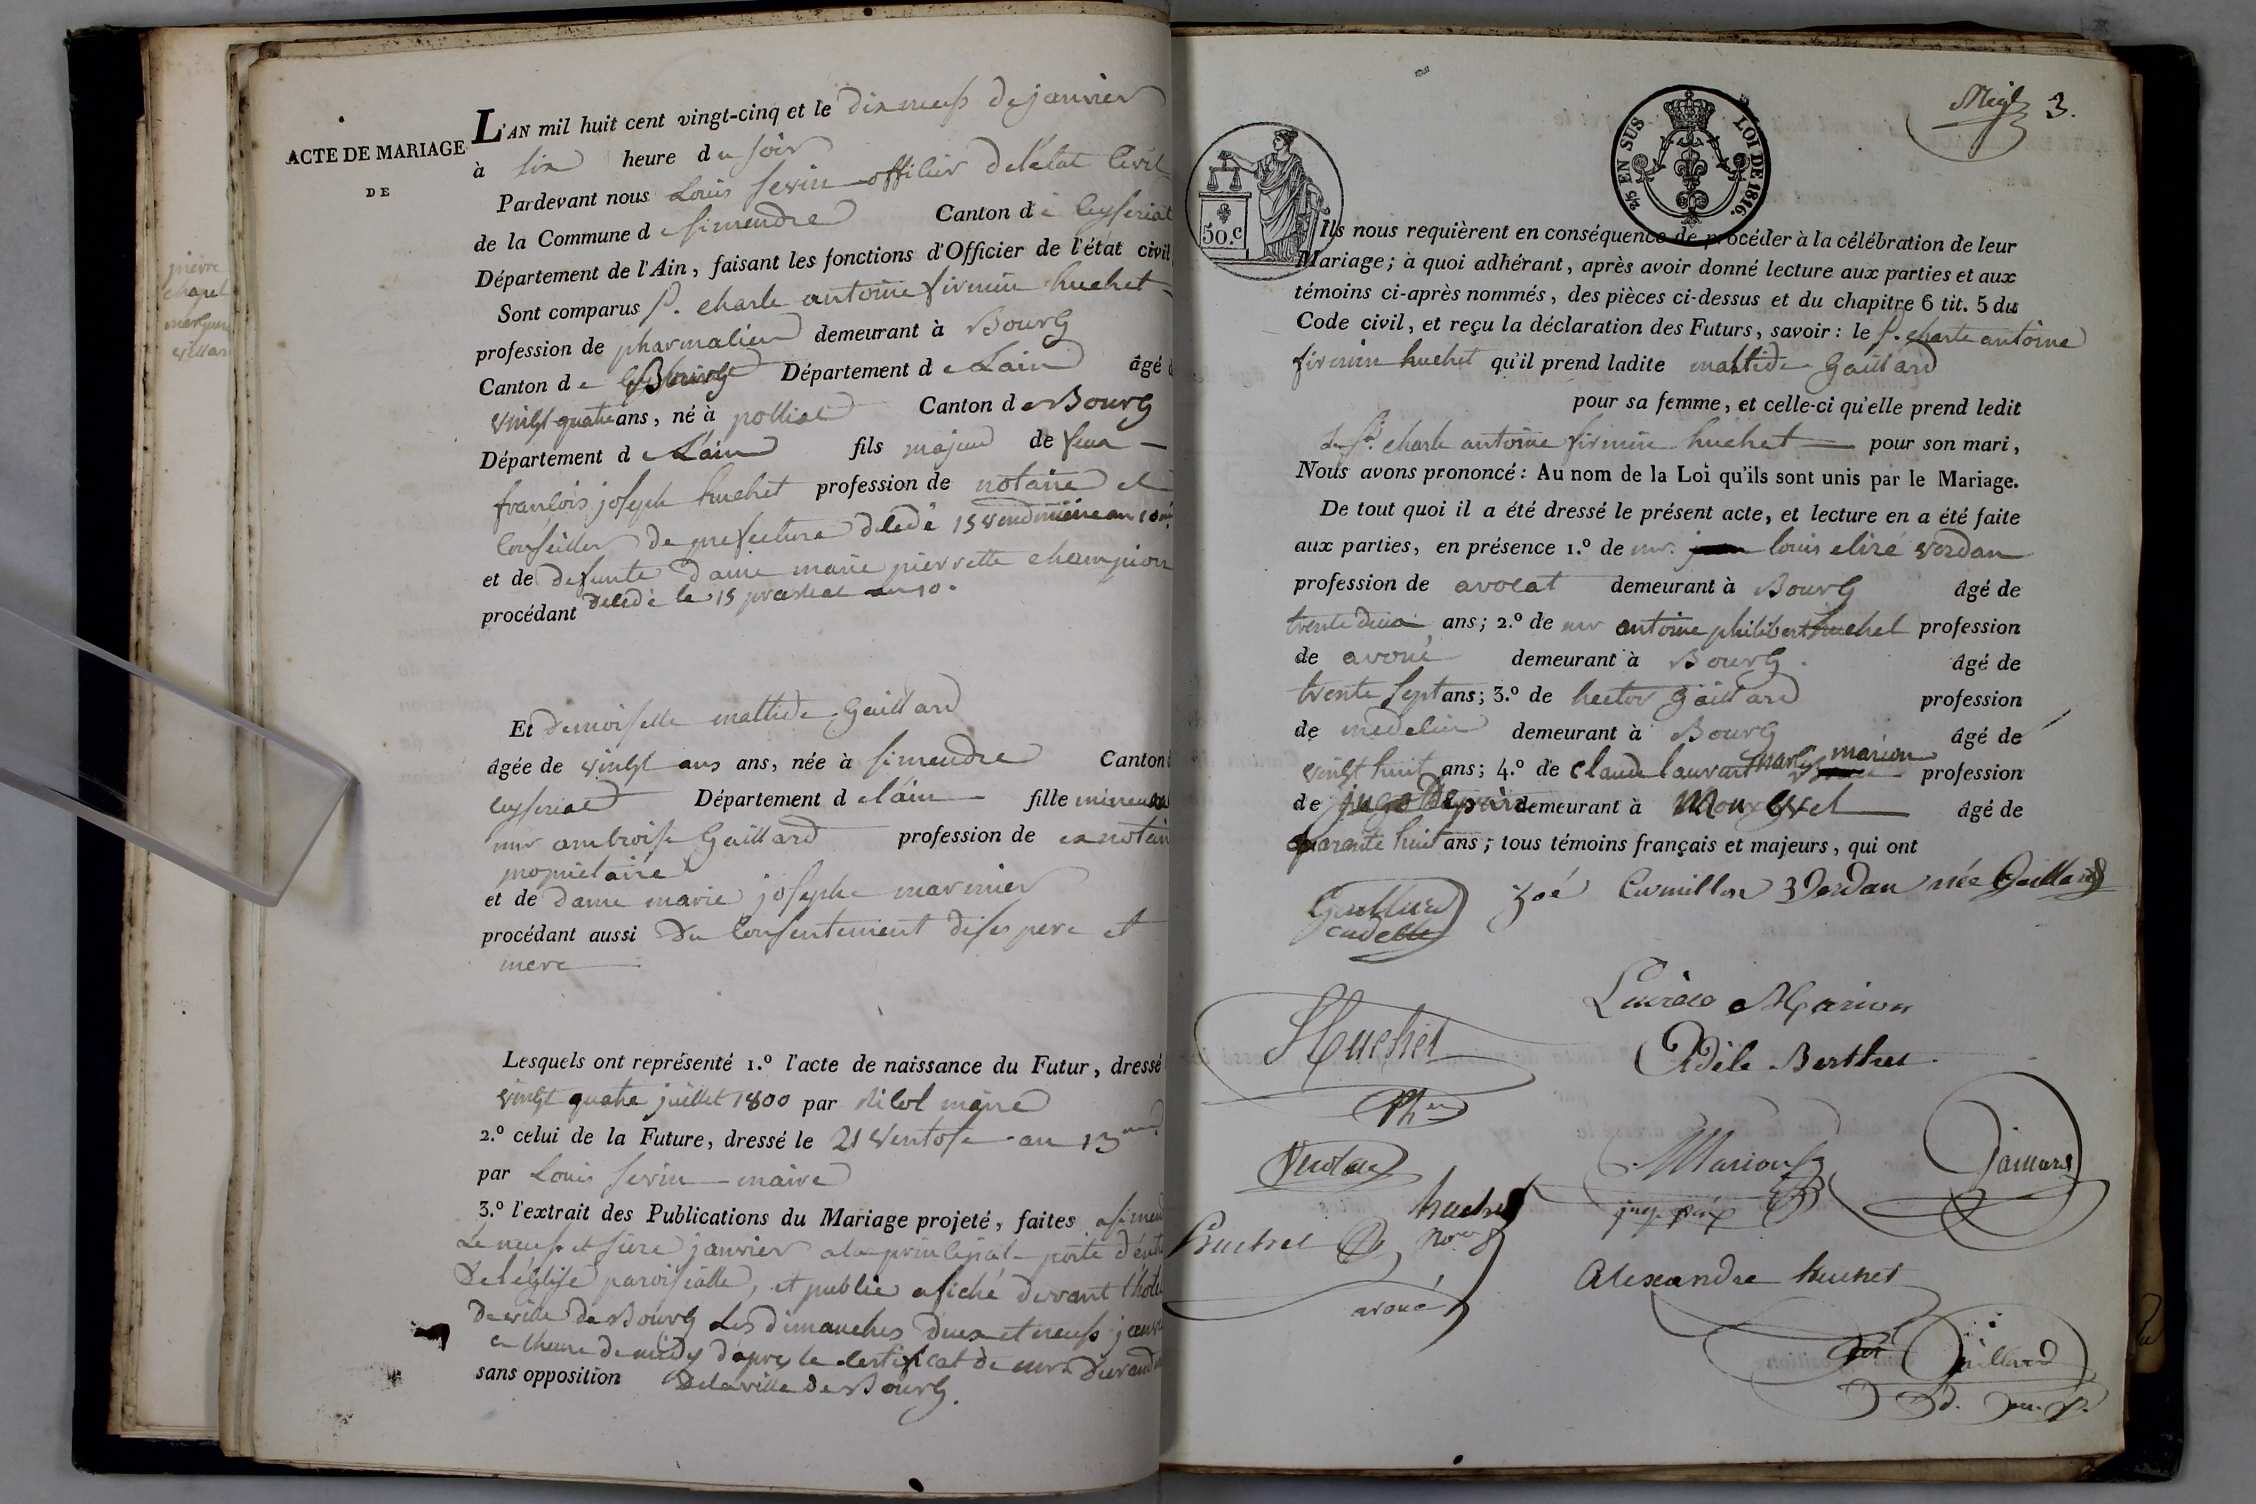 pierre
chapel
ACTE DE MARIAGE
DE
L'AN mil huit cent vingt-cinq et le dix neuf de janvier
à six heure du soir
Pardevant nous Louis Sevin officier de létat Civil
de la Commune de Simendre Canton de Ceyseriat
Département de l'Ain, faisant les fonctions d'Officier de l'état civil
Sont comparus S. charle antoine firmin huchet
profession de pharmacien demeurant à Bourg
Canton de Bourg Département de Lain âgé
vingt quatre ans, né à polliat Canton de Bourg
Département de Lain fils majeur de feux
françois joseph huchet profession de notaire et
Conseiller de prefecture décédé 15 vendemiaire an 10
et de defunte dame marie pierrette champion
procédant décédé le 15 prairial an 10.
Et Demoiselle matilde Gaillard
âgée de vingt ans ans, née à Simendre Canton
Ceyseriat Département de lain fille mineure
mr ambroise Gaillard profession de ex notaire
propriétaire
et de Dame marie josephe marinier
procédant aussi Du Consentement de ses pere et
mere
Lesquels ont représenté 1.º l'acte de naissance du Futur, dressé
vingt quatre juillet 1800 par maire
2.º celui de la Future, dressé le 21 Ventose an 13
par Louis Sevin maire
3.º l'extrait des Publications du Mariage projeté, faites a Simend
Le neuf et seize janvier a la principal porte d'ent
De léglise paroissialle, et publié afiché devant lhotel
De ville de Bourg Les dimanches deux et neuf janv
a lheure de midy daprès le certificat de mr Durand
sans opposition De la ville de Bourg.
3.
50.c
EN SUS LOI DE 1816.
Ils nous requièrent en conséquence de procéder à la célébration de leur
Mariage; à quoi adhérant, après avoir donné lecture aux parties et aux
témoins ci-après nommés, des pièces ci-dessus et du chapitre 6 tit. 5 du
Code civil, et reçu la déclaration des Futurs, savoir: le S. charle antoine
firmin huchet qu'il prend ladite matilde Gaillard
pour sa femme, et celle-ci qu'elle prend ledit
S. charle antoine firmin huchet pour son mari,
Nous avons prononcé: Au nom de la Loi qu'ils sont unis par le Mariage.
De tout quoi il a été dressé le présent acte, et lecture en a été faite
aux parties, en présence 1.º de mr. louis eliré Verdan
profession de avocat demeurant à Bourg âgé de
trente deux ans; 2.º de mr antoine philibert huchet profession
de avoué demeurant à Bourg. âgé de
trente sept ans; 3.º de hector Gaillard profession
de medecin demeurant à Bourg âgé de
vingt huit ans; 4.º de claude laurant mary marion profession
de juge de paix demeurant à Montrevel âgé de
quarante huit ans; tous témoins français et majeurs, qui ont
zoé Verdan née Gaillard
Marion
Huchet
Adèle Berthet
Phen
Marion
juge paix
huchet
Huchet
avoué
Alexandre huchet
Gaillard